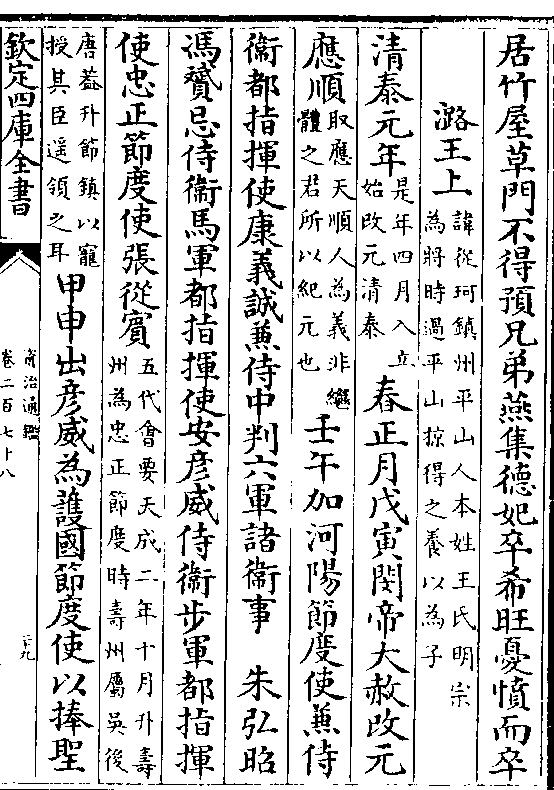 居竹屋草門不得預兄弟燕集德妃卒希旺憂憤而卒
潞王上諱從珂鎮州平山人本姓王氏明宗為將時過平山掠得之養以為子
清泰元年是年四月入立始改元清泰春正月戊寅閔帝大赦改元
應順取應天順人為義非繼體之君所以紀元也壬午加河陽節度使兼侍
衞都指揮使康義誠兼侍中判六軍諸衞事 朱弘昭
馮贇忌侍衞馬軍都指揮使安彦威侍衞步軍都指揮
使忠正節度使張從賓五代會要天成二年十月升壽州為忠正節度時壽州屬吳後
唐葢升節鎮以寵授其臣遥領之耳甲申出彦威為護國節度使以捧聖
欽定四庫全書
資治通鑑
卷二百七十八
二十九